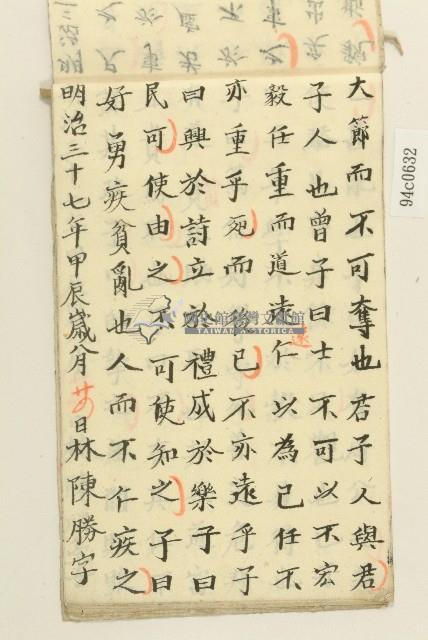 大節而不可奪也君子人與君
子人也曾子曰士不可以不宏
毅任重而道遠仁以為己任不
遠
亦重乎死而後已不亦遠乎子
曰興於詩立於禮成於樂子曰
民可使由之不可使知之子曰
好勇疾貧亂也人而不仁疾之
明治三十七年甲辰歲八月廿日林陳勝字
94c0632
國史館臺灣文獻館
TAIWAN HISTORICA